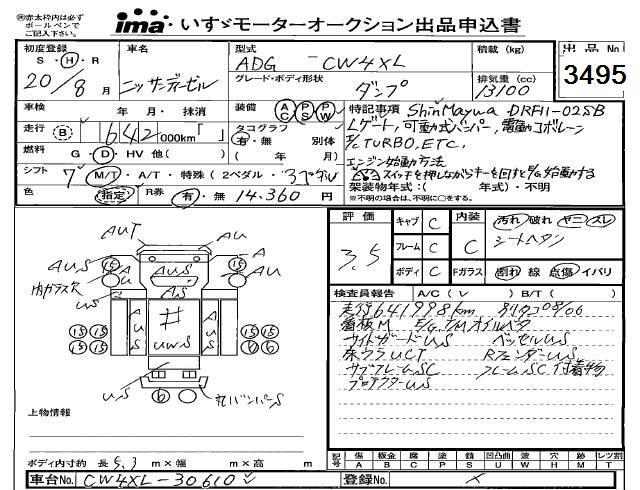 ㊟赤太枠内は必ず
ボールペンで
ご記入下さい。
ima いすゞモーターオークション出品申込書
初度登録 車名 型式 積載 (kg) 出品No.
S・H・R ADG - CW4XL 3495
20/8 月 ニッサンディーゼル グレード・ボディ形状 ダンプ 排気量 (cc) 13100
車検 年 月・ 抹消 装備 AC PS PW 特記事項 ShinMaywa DRF11-02SB
走行 B 642 000km「 」 タコグラフ Lゲート, 可動式バンパー, 電動コボレーン
有・無 別体 TURBO, ETC.
燃料 G・D・HV 他( ) ( 年 月) エンジン始動方法
シフト 7 M/T・A/T・特殊 (2ペダル・3ペダル スイッチを押しながらキーを回すとE/G始動する
架装物年式:( 年式)・不明
色 指定 R券 有・無 14,360 円 ※不明の場合は、不明に○をする。
評価 3.5 キャブ C 内装 C 汚れ 破れ ヤニ スレ
フレーム C シートヘタリ
ボディ C Fガラス 割れ 線 点傷 イバリ
検査員報告 A/C ( V ) B/T ( )
走行641998km
看板M E/G, T/Mオイルベタ
サイドガードUS ベッセルUS
床ウラUCT RフェンダーUS
サブフレームSC フレームSC付着物
プロテクターUS
AUT
AU
AU
A
AUS
15
AU
AUS
AU
15
内ガラス欠
US
AS
AUS
#
UWS
AUS
15 15
15 15
15 15
15 6
US
6
RバンパーS
上物情報
ボディ内寸約 長 5.3 m×幅 m×高 m
記号 傷 板金 腐 塗 錆 凹凸曲 波 穴 欠 時 レツ割
A B C P S U W H K M T
車台No. CW4XL-30610 登録No. ×